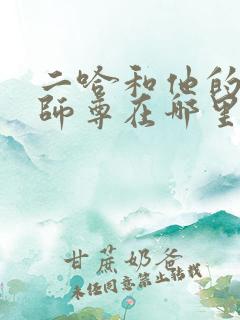 二哈和他的
師尊在哪里
甘蔗奶爸
未经同意禁止转载